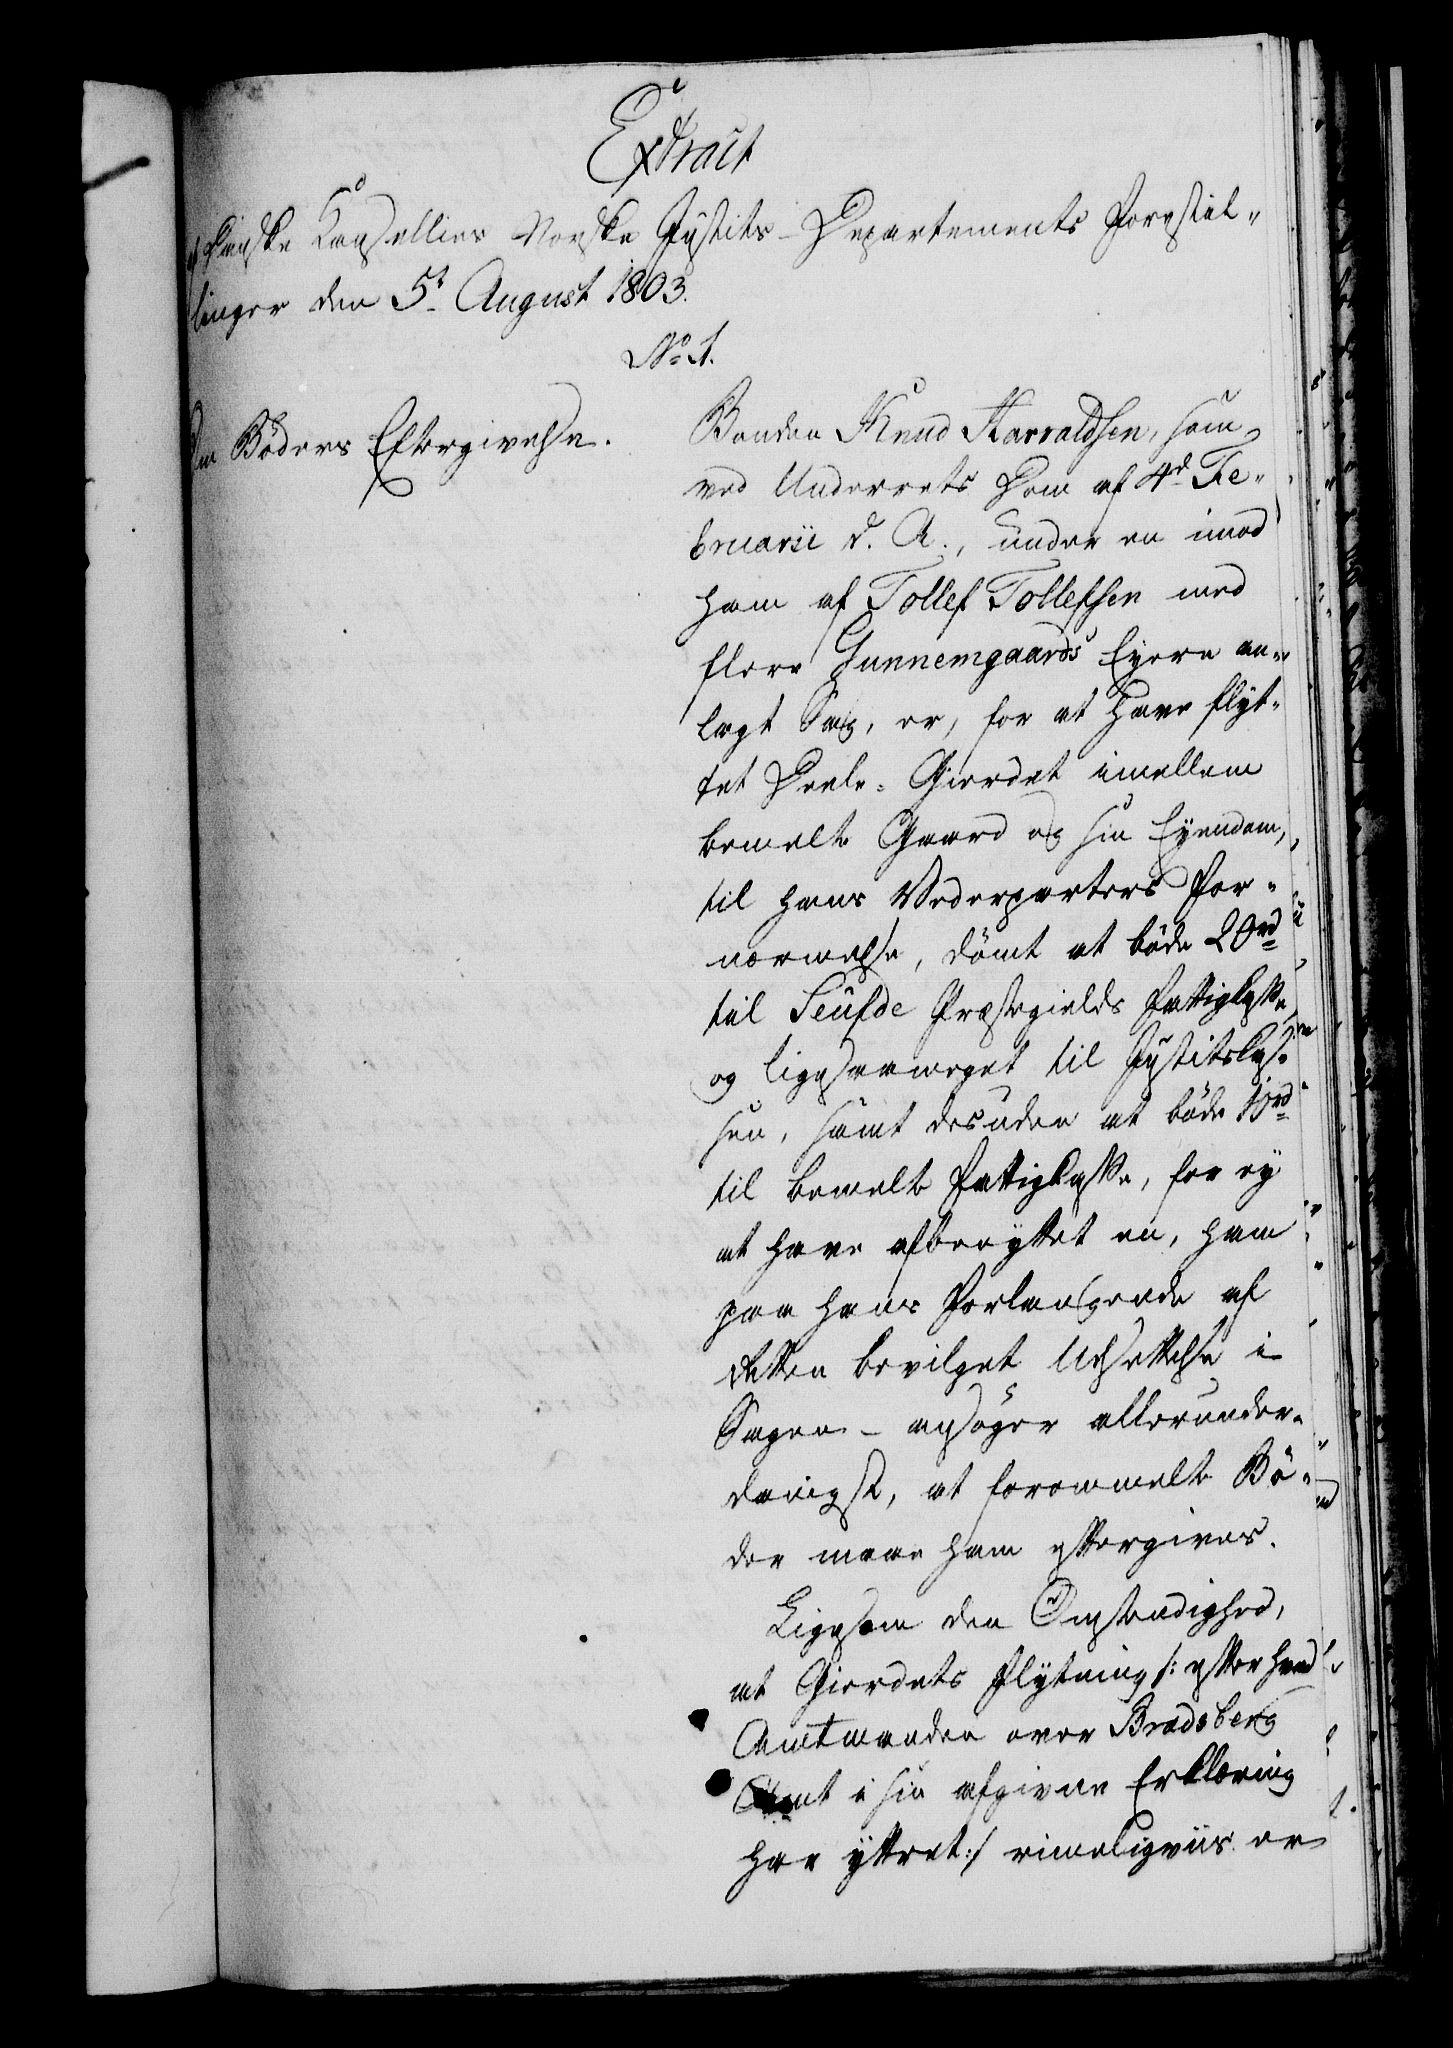 Extract
af Danske Cancellies Norske Justits-Departements Forestil-
linger den 5t August 1803.
No 1.
Om Böders Eftergivelse.
Bonden Knud Harraldsen, som
ved Underrets Dom af 4d Fe-
bruarii d. A., under en imod
ham af Tollef Tollefsen med
flere Gunnemgaards Eyere an-
lagt Sag, er, for at have flyt-
tet Deele-Gierdet imellem
bemelte Gaard og sin Eyendom,
til hans Vederparters For-
nærmelse, dömt at böde 20rd
til Seufde Præstegields Fattigkasse
og ligesaameget til Justitskas-
sen, samt desuden at böde 10rd
til bemelte Fattigkasse, for ey
at have afbenyttet en, ham
paa hans Forlangende af
Retten bevilget Udsættelse i
Sagen - ansöger allerunder-
danigst, at forommelte Bö-
der maae ham eftergives.
Ligesom den Omstændighed,
at Gierdets Flytning /: efter hvad
Amtmanden over Bradsberg
Amt i sin afgivne Erklæring
har yttret :/ rimeligviis er